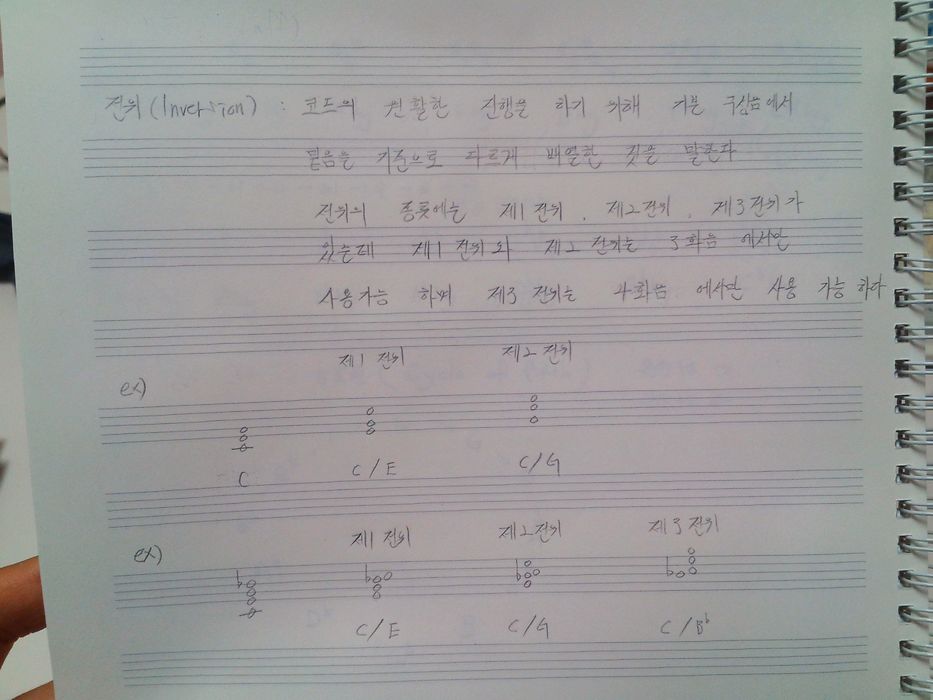 전위 (Inversion) : 코드의 원활한 진행을 하기 위해 기본 구성음에서
밑음을 기준으로 다르게 배열한 것을 말한다
전위의 종류에는 제1전위, 제2전위, 제3전위가
있는데 제1전위와 제2전위는 3화음에서만
사용가능 하며 제3전위는 4화음 에서만 사용 가능 하다
제1전위 제2전위
ex)
C C/E C/G
제1전위 제2전위 제3전위
ex)
C/E C/G C/B♭